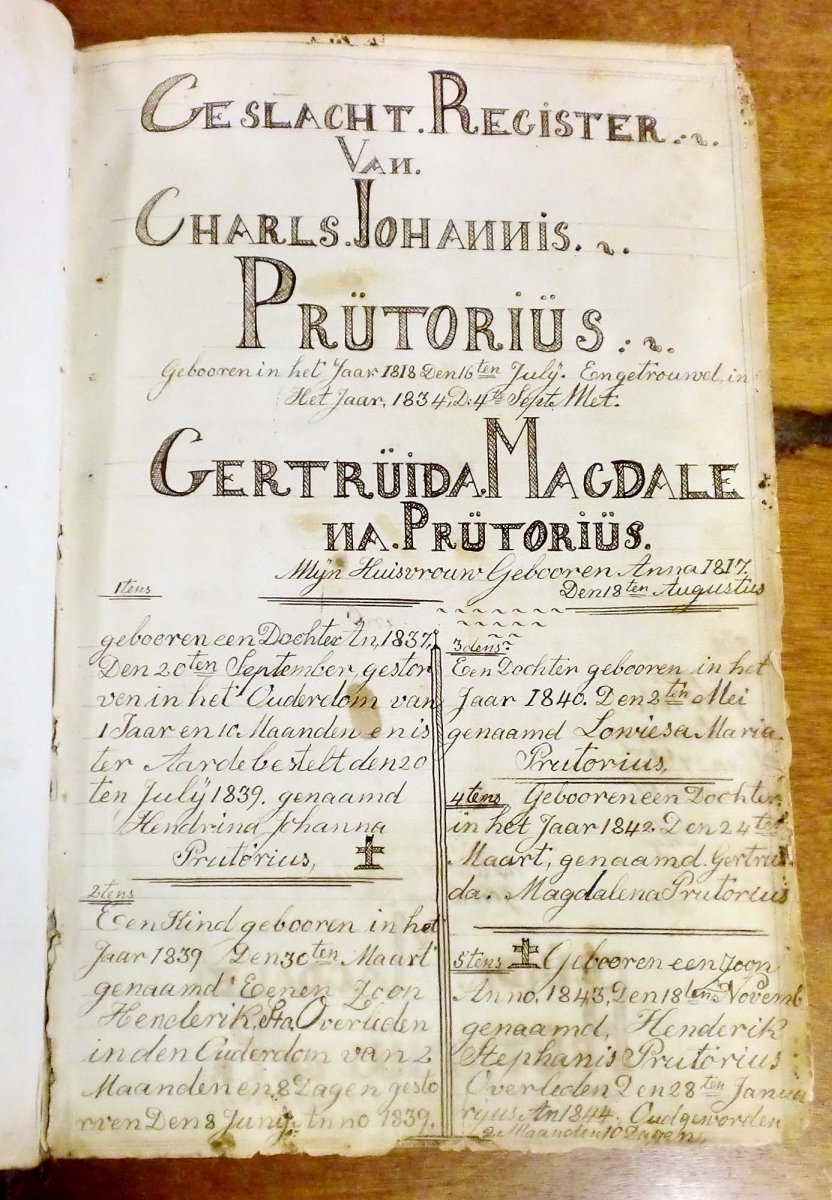 GESLACHT. REGISTER
VAN.
CHARLS. JOHANNIS.
PRÜTORIÜS.
Gebooren in het Jaar 1818 Den 16ten July. En getrouwd, in
Het Jaar, 1834, D: 4te Septe Met.
GERTRÜIDA. MAGDALE
NA. PRÜTORIÜS.
Mÿn Huisvrouw Gebooren Anna 1817.
Den 18ten Augustus
1tens
gebooren een Dochter An, 1837,
Den 20ten September, gestor
ven in het Ouderdom van
1 Jaar en 10 Maanden en is
ter Aarde bestelt den 20
ten Julÿ 1839. genaamd
Hendrina Johanna
Prutorius,
2tens
Een Kind gebooren in het
Jaar 1839 Den 30ten Maart
genaamd Eenen Zoon
Henderik. Overliden
in den Ouderdom van 2
Maanden en 8 Dagen gesto
rven Den 8 Juny Anno 1839.
3dens
Een Dochter gebooren in het
Jaar 1840. Den 2ten Mei
genaamd Lowiesa Maria
Prutorius,
4tens Gebooren een Dochter
in het Jaar 1842. Den 24ten
Maart, genaamd. Gertrui
da. Magdalena Prutorius
5tens Gebooren een Zoon
Anno, 1843, Den 18ten Novemb
genaamd, Henderik
Stephanis Prutorius
Overleden Den 28ten Janua
rijus An 1844. Oud geworden
2 Maanden 10 Dagen,